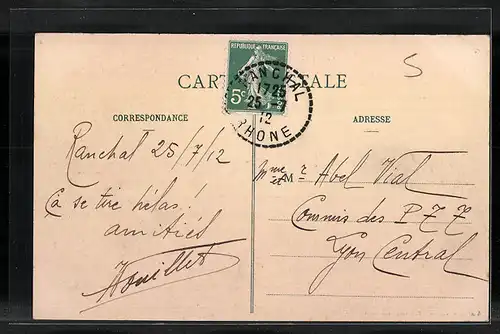 5
REPUBLIQUE FRANÇAISE
5c
RANCHAL
17 25
25 -7
12
RHONE
CARTE POSTALE
CORRESPONDANCE
ADRESSE
Ranchal 25/7/12
Ça se tire hélas!
amitiés
Mme et Mr Abel Vial
Commis des P T T
Lyon Central